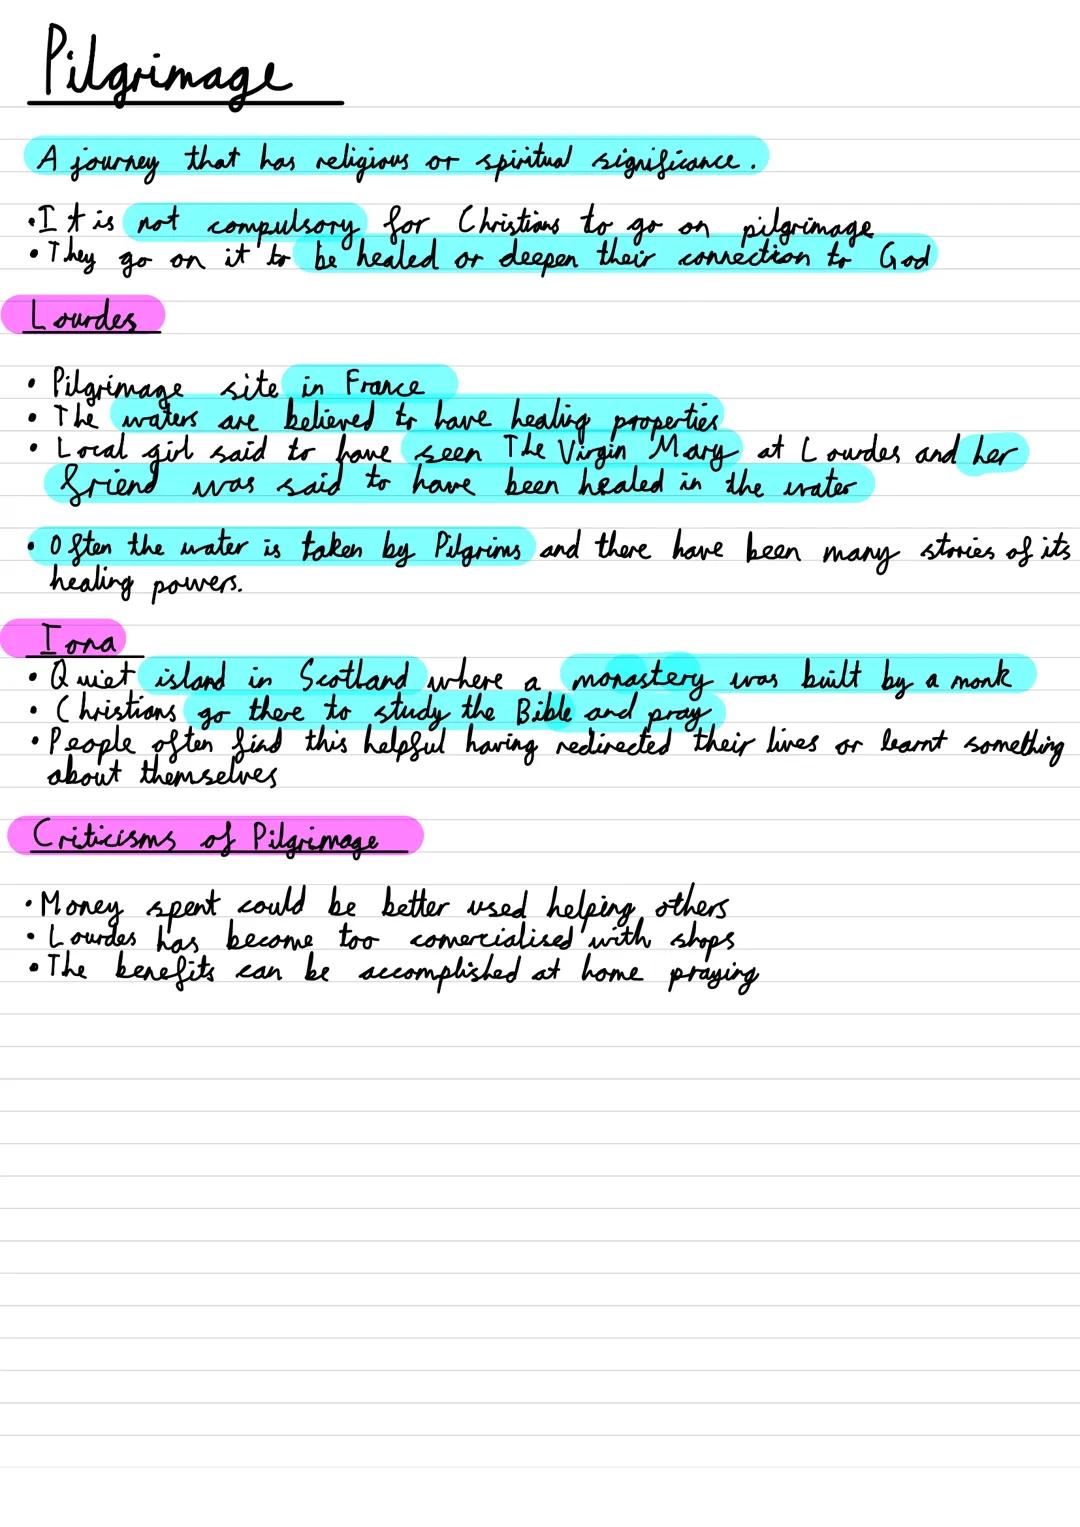 Pilgrimage
A journey that has religious or spiritual significance.
• It is not compulsory for Christians to go on pilgrimage
• They go on it to be healed or deepen their connection to God
Lourdes
• Pilgrimage site in France
• The waters are believed to have healing properties
• Local girl said to have seen The Virgin Mary at Lourdes and her
friend was said to have been healed in the water
• Often the water is taken by Pilgrims and there have been many stories of its
healing powers.
Iona
• Quiet island in Scotland where a monastery was built by a monk
• Christians go there to study the Bible and pray
• People often find this helpful having redirected their lives or learnt something
about themselves
Criticisms of Pilgrimage
• Money spent could be better used helping others
• Lourdes has become too comercialised with shops
• The benefits can be accomplished at home praying